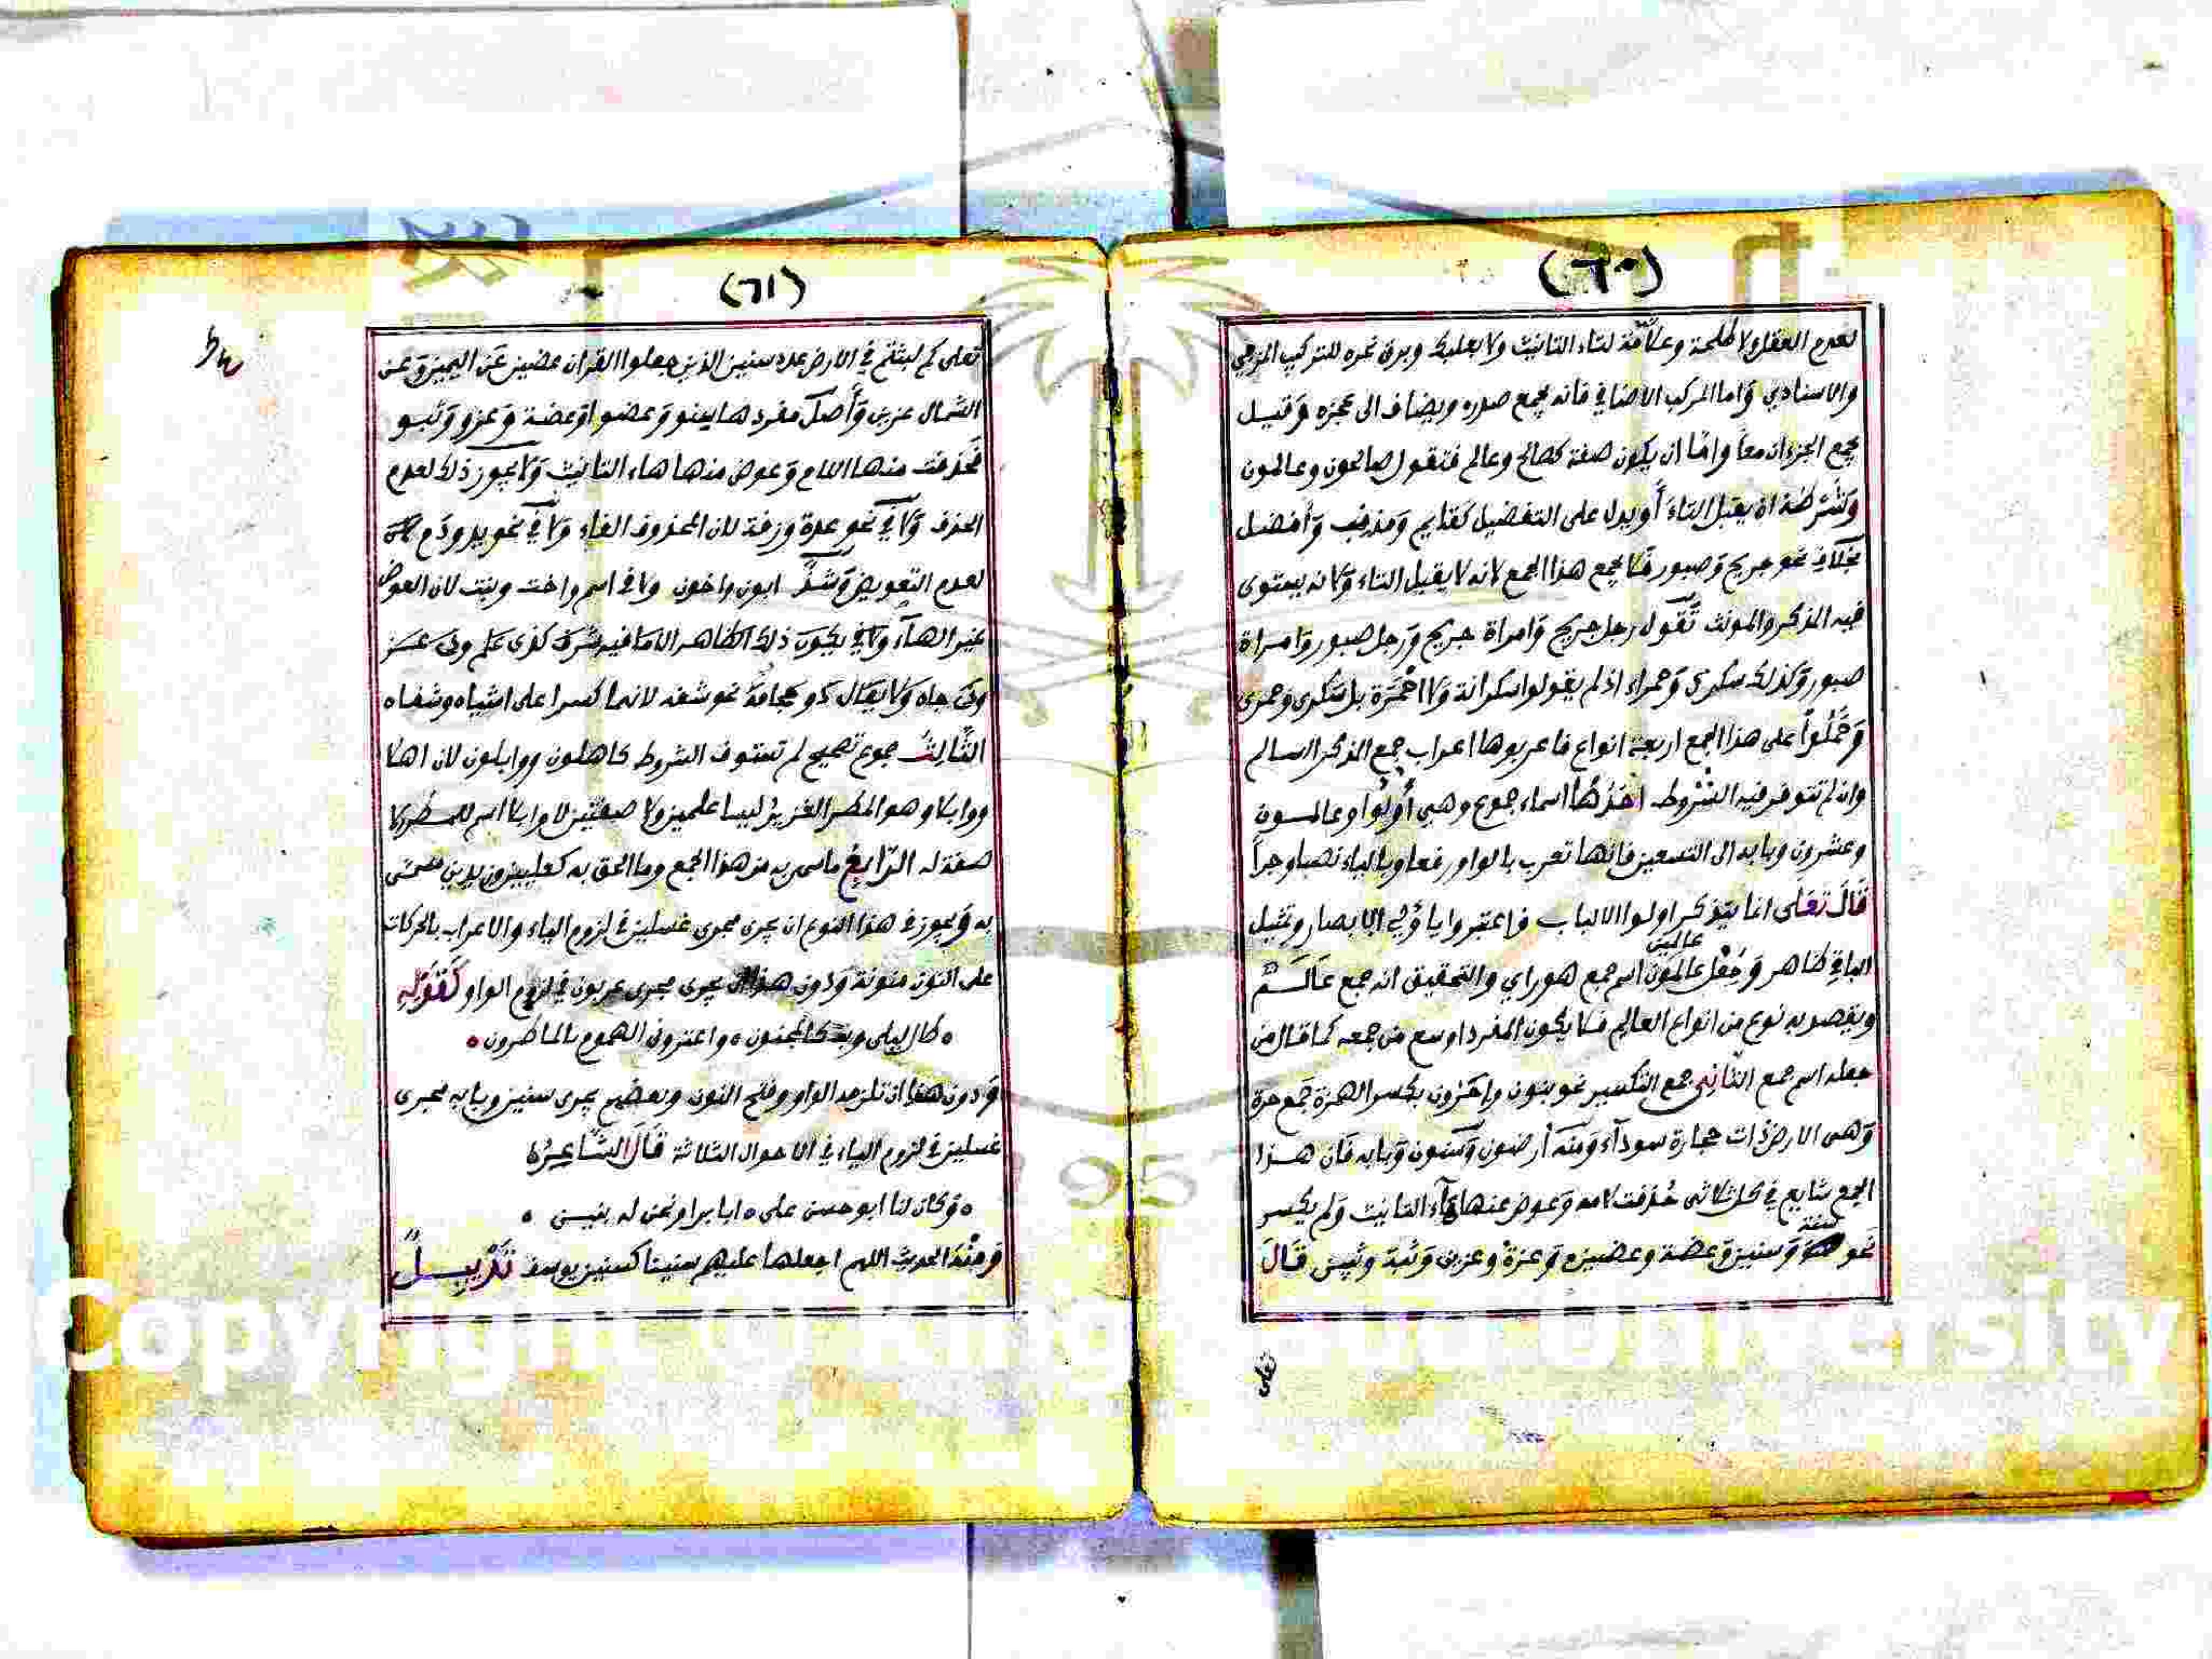 (٦٠)
لعدم العقل ولا طلحة وعلامة لتاء التانيث ولا بعلبك وبرق نحره للتركيب المزجي
والاسنادي وَاما المركب الاضافي فانه يجمع صدره ويضاف الى عجزه وَقيل
يجمع الجزءان معاً وامّا ان يكون صفة كصالح وعالم فتقول صالحون وعالمون
وَشَرطه ان يقبل التاء أو يدل على التفضيل كقايم وَمذنب وَأفضل
بخلاف نحو جريح وَصبور فلا يجمع هذا الجمع لانه لا يقبل التاء وَلانه يستوى
فيه المذكر والمونث تَقول رجل جريح وَامراة جريح وَرجل صبور وَامراة
صبور وَكذلك سكرى وَحمراء اذ لم يقولوا سكرانة وَلا احْمَرَة بل سَكرى وحمرى
وَحَمَلُوا على هذا الجمع اربعة انواع فاعربوها اعراب جمع المذكر السالم
وان لم تتوفر فيه الشروط احَدُها اسماء جموع وهى أُولُوا وعالمون
وعشرون وبابه الى التسعين فانها تعرب بالواو رفعا وبالياء نصبا وجراً
قَالَ تَعَلَى انما يتذكر اولوا الالباب فاعتبروا يا وُلي الابصار وتمثيل
عالمين
الباقي ظاهر وَجُعْل عالمَون اسم جمع هو راي والتحقيق انه جمع عَالَم
ويقصد به نوع من انواع العالم فلا يكون المفرد اوسع من جمعه كما قال من
جعله اسم جمع الثَانِى جمع التكسير نحو بنون واحَرّون بكسر الهمزة جَمع حرة
وَهى الارض ذات حجارة سودآء وَمنه أَرضون وَسنون وَبابه فَان هذا
الجمع شايع في كل ثلاثى حُذفت لامه وَعوض عنها هآء التانيث وَلم يكسر
سنة
نحو وَسنين وَعضة وعضين وَعزة وعزين وَثبة وثبين قَالَ
(٦١)
تعلى كم لبثتم في الارض عدد سنين الذين جعلوا القران عضين عَن اليمين وَعن
الشمال عزين وَأَصل مفردها سنو وَعضو اوعضة وَعزو وَثبو
فَحذفت منها اللام وَعوض منها هاء التانيث وَلا يجوز ذلك لعدم
الحذف وَلا في نحو عدة وزنة لان المحذوف الفاء وَلا في نحو يد ودَم
لعدم التعويض وَشذّ ابون واخون ولا في اسم واخت وبنت لان العوض
غير الهاء
الثَّالِثُ جموع تصحيح لم تستوف الشروط كاهلون ووابلون لان اهلا
ووابلا وهو المطر الغزيرُ ليسا علمين ولا صفتين لان وابلا اسم للمطر لا
صفة له الرّابعُ ماسمي به من هذا الجمع وما الحق به كعليين وزيدين مسمّى
به وَيجوز في هذا النوع ان يجرى مجرى غسلين في لزوم الياء والاعراب بالحركات
على النون منونة وَدون هذا ان يجرى مجرى عربون في لزوم الواو كَقَوْلِهِ
طال ليلى وبت كالمجنون ° واعترونى الهموم بالماطرون
وَدون هذا ان تلزمه الواو وفتح النون وبعضهم يجرى سنين وبابه مجرى
غسلين في لزوم الياء في الاحوال الثلاثة قَالَ الشّاعِرُ
° وَكان لنا ابو حسن على ° ابا برا ونحن له بنين °
وَمنْهُ الحديث اللهم اجعلها عليهم سنينا كسنين يوسف تَذْيِيلٌ